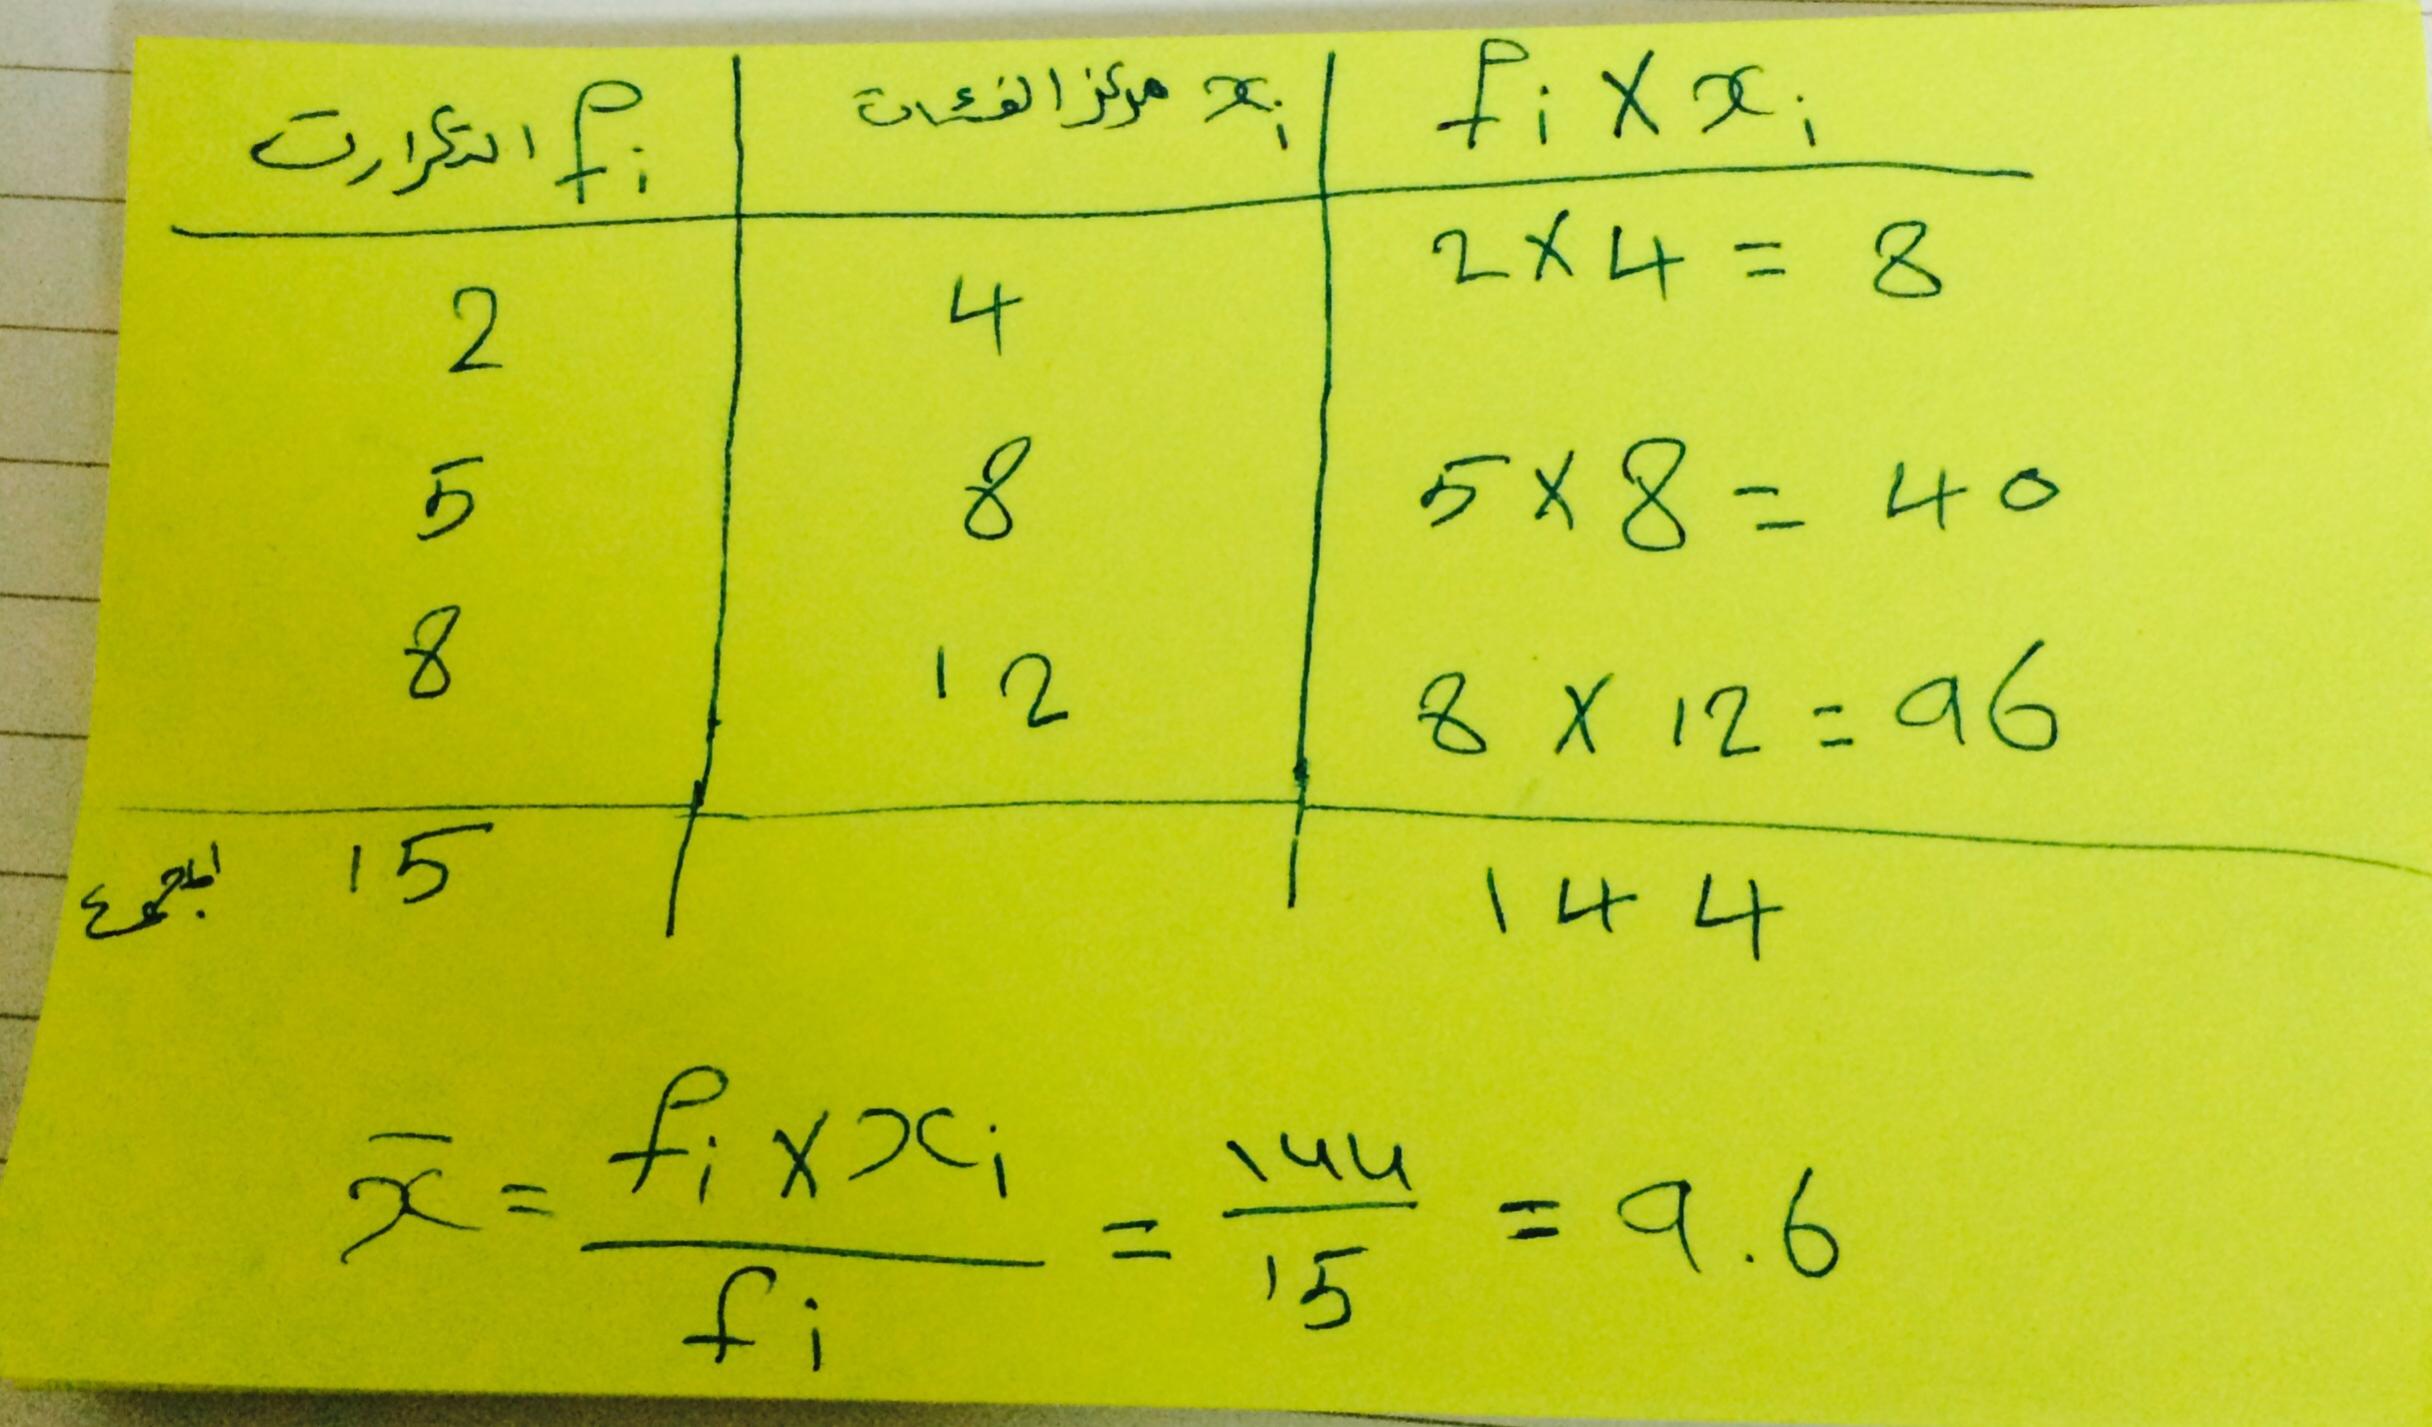 التكرارت fi | مركز الفئات xi | fi × xi
2 | 4 | 2 × 4 = 8
5 | 8 | 5 × 8 = 40
8 | 12 | 8 × 12 = 96
المجموع 15 | | 144
x̄ = fi × xi / fi = 144 / 15 = 9.6